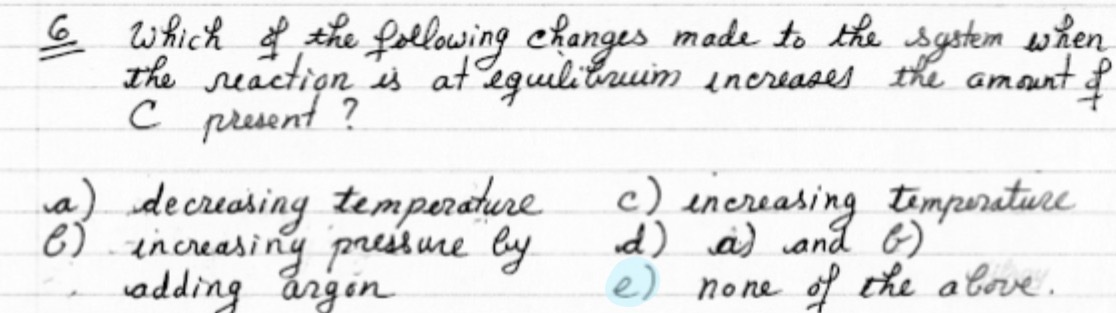 6 Which of the following changes made to the system when
the reaction is at equilibrium increases the amount of
C present ?
a) decreasing temperature c) increasing temperature
b) increasing pressure by d) a) and b)
adding argon e) none of the above.